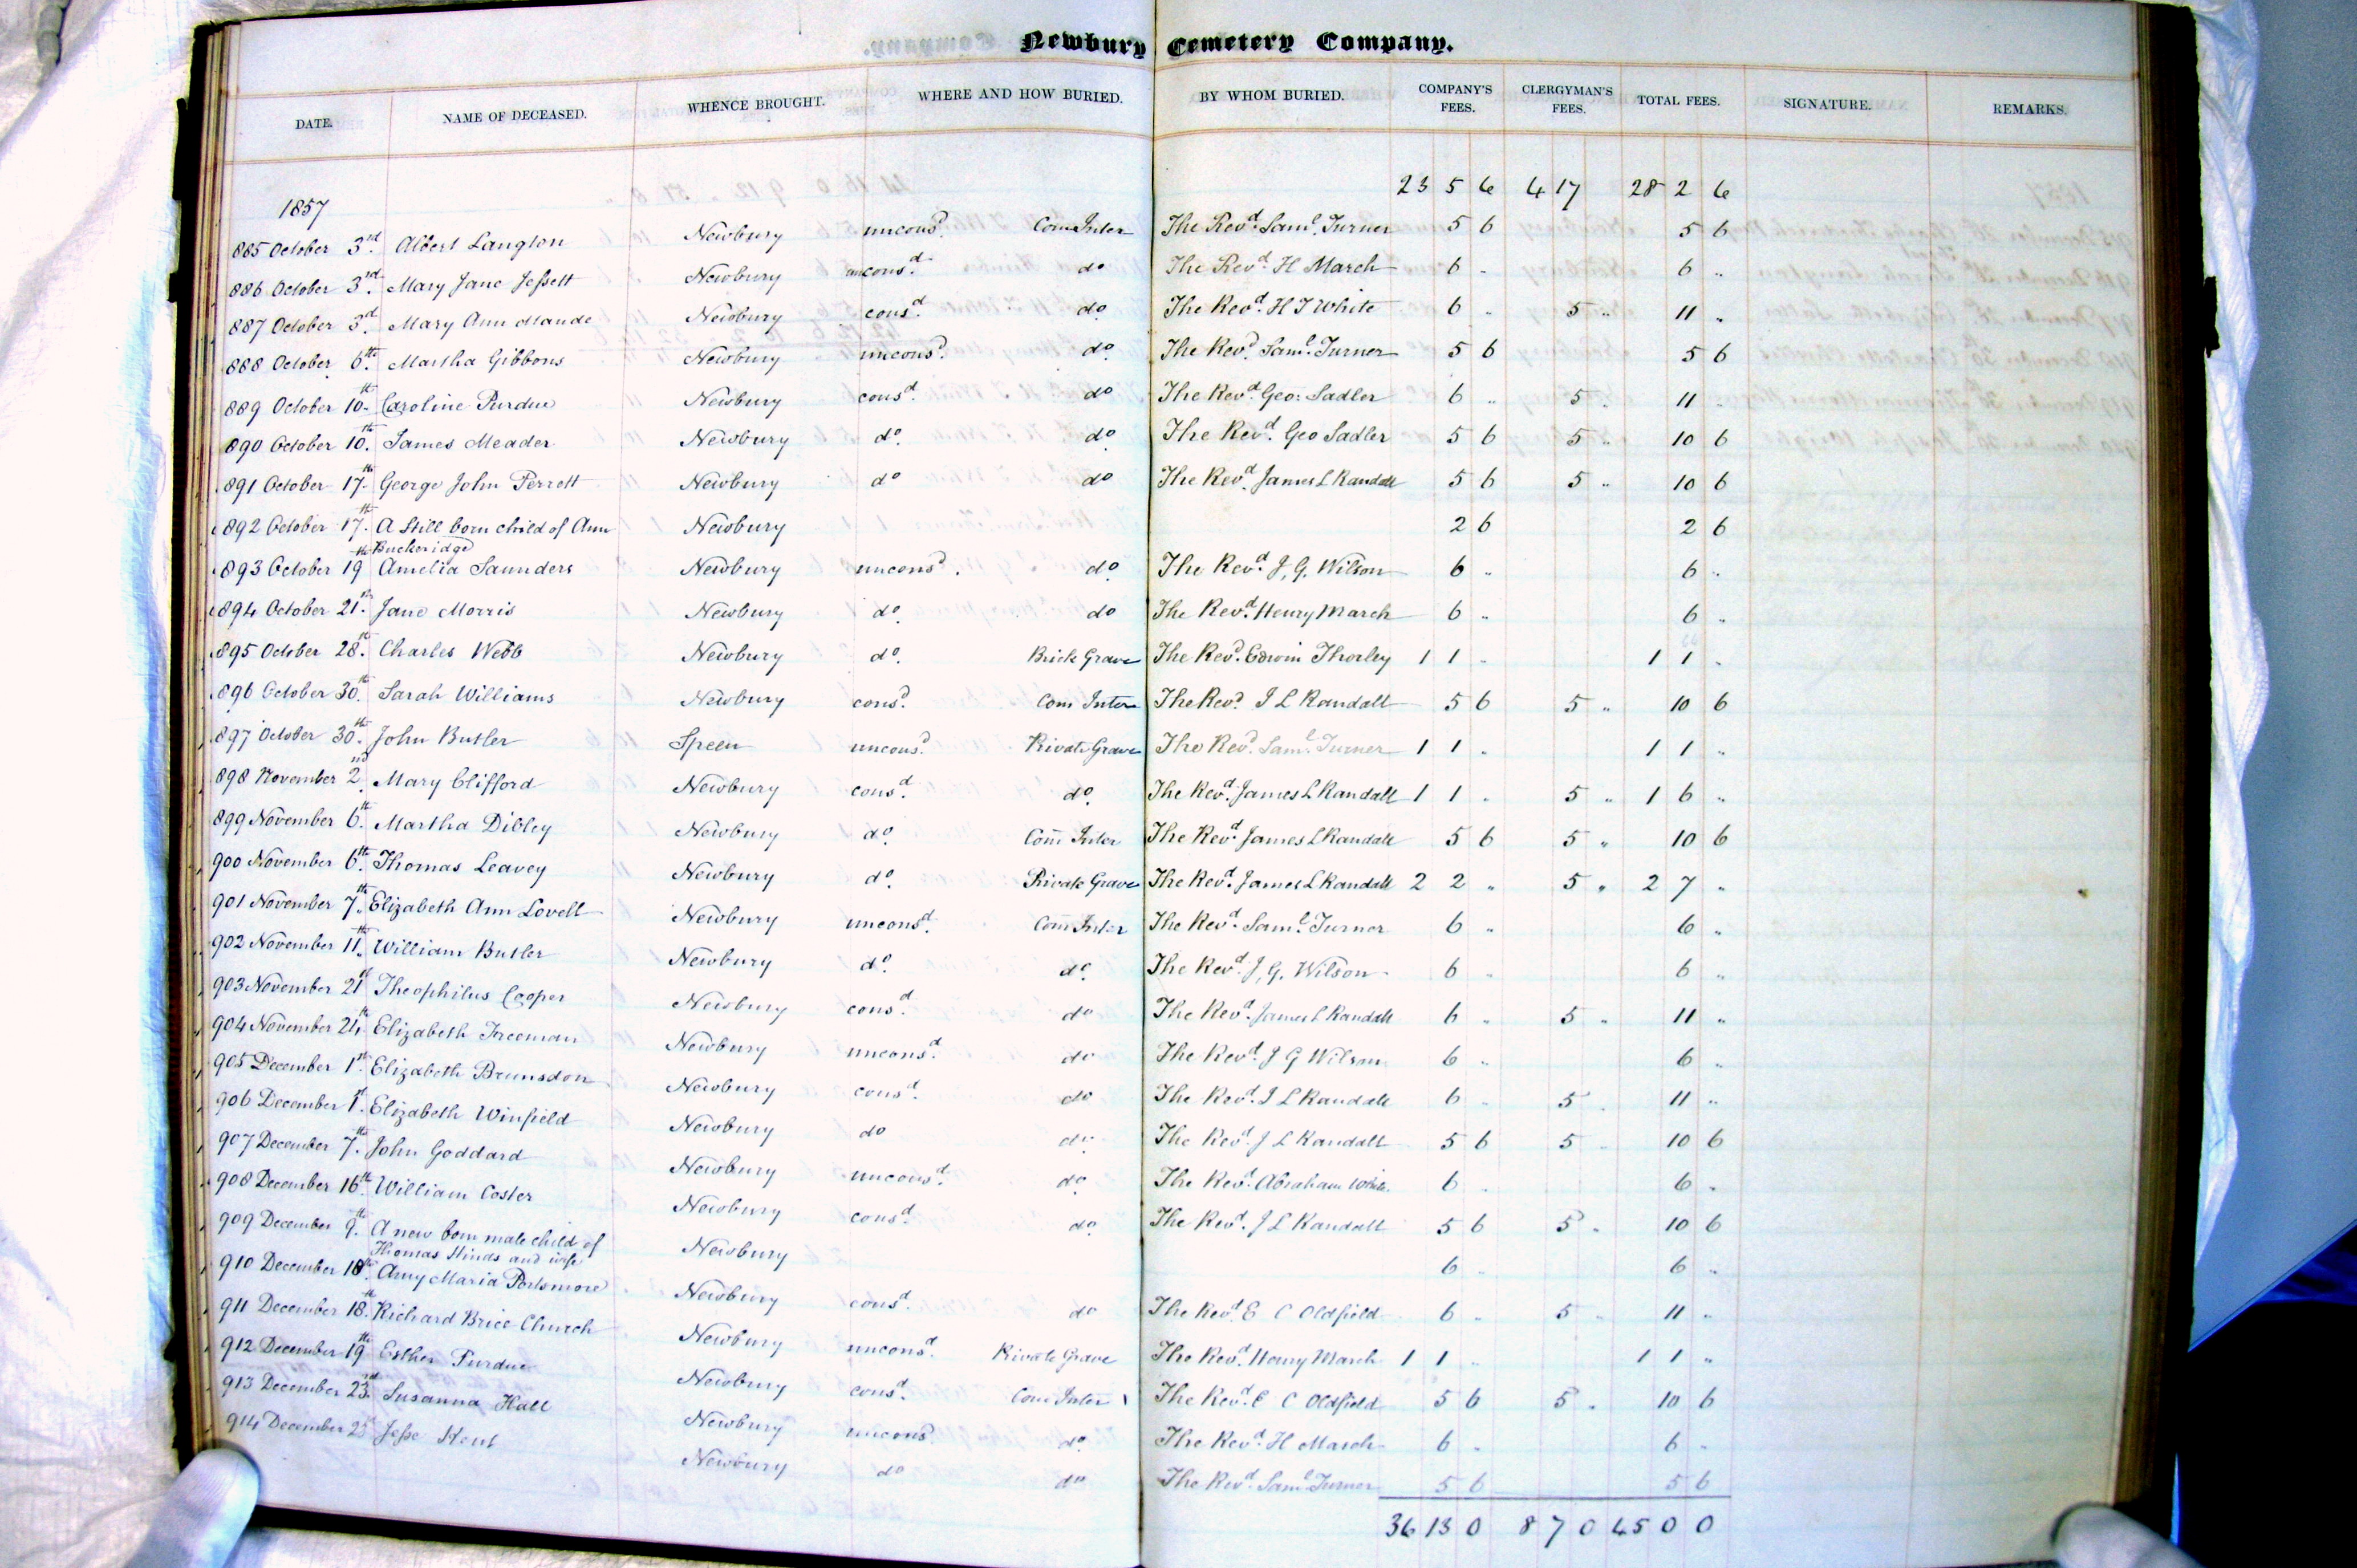 Newbury Cemetery Company.
DATE. NAME OF DECEASED. WHENCE BROUGHT. WHERE AND HOW BURIED. BY WHOM BURIED. COMPANY'S FEES. CLERGYMAN'S FEES. TOTAL FEES. SIGNATURE. REMARKS.
23 5 6 4 17 28 2 6
1857
885 October 3rd. Albert Langton Newbury uncons.d Com Inter The Revd. Saml. Turner 5 6 5 6
886 October 3rd. Mary Jane Jessett Newbury uncons.d do The Revd. H March 6 " 6 "
887 October 3rd. Mary Ann Maude Newbury cons.d do The Revd. H J White 6 " 5 " 11 "
888 October 6th. Martha Gibbons Newbury uncons.d do The Revd. Saml. Turner 5 6 5 6
889 October 10th. Caroline Purdue Newbury cons.d do The Revd. Geo: Sadler 6 " 5 " 11 "
890 October 10th. James Meader Newbury do. do The Revd. Geo Sadler 5 6 5 " 10 6
891 October 17th. George John Perrett Newbury do do The Revd. James L Randall 5 6 5 " 10 6
892 October 17th. A Still born child of Ann Newbury 2 6 2 6
Buckeridge
893 October 19th Amelia Saunders Newbury uncons.d do The Revd. J, G. Wilson 6 " 6 "
894 October 21st. Jane Morris Newbury do. do The Revd. Henry March 6 " 6 "
895 October 28th. Charles Webb Newbury do. Brick Grave The Revd. Edwin Thorley 1 1 " 1 1 "
896 October 30th. Sarah Williams Newbury cons.d Com Inter The Revd. J L Randall 5 6 5 " 10 6
897 October 30th. John Butler Speen uncons.d Private Grave The Revd. Saml. Turner 1 1 " 1 1 "
898 November 2nd. Mary Clifford Newbury cons.d do. The Revd. James L Randall 1 1 " 5 " 1 6 "
899 November 6th. Martha Dibley Newbury do. Com Inter The Revd. James L Randall 5 6 5 " 10 6
900 November 6th. Thomas Leavey Newbury do. Private Grave The Revd. James L Randall 2 2 " 5 " 2 7 "
901 November 7th. Elizabeth Ann Lovell Newbury uncons.d Com Inter The Revd. Saml. Turner 6 " 6 "
902 November 11th. William Butler Newbury do. do. The Revd. J, G. Wilson 6 " 6 "
903 November 21st Theophilus Cooper Newbury cons.d do The Revd. James L Randall 6 " 5 " 11 "
904 November 24th. Elizabeth Freeman Newbury uncons.d do The Revd. J G Wilson 6 " 6 "
905 December 1st. Elizabeth Brunsdon Newbury cons.d do The Revd. J L Randall 6 " 5 " 11 "
906 December 1st. Elizabeth Winfield Newbury do do The Revd. J L Randall 5 6 5 " 10 6
907 December 7th. John Goddard Newbury uncons.d do. The Revd. Abraham White. 6 " 6 "
908 December 16th. William Coster Newbury cons.d do. The Revd. J L Randall 5 6 5 " 10 6
909 December 9th. A new born male child of Newbury 6 " 6 "
Thomas Hinds and wife
910 December 18th. Amy Maria Portsmore Newbury cons.d do The Revd. E C Oldfield 6 " 5 " 11 "
911 December 18th. Richard Brice Church Newbury uncons.d Private Grave The Revd. Henry March 1 1 " 1 1 "
912 December 19th Esther Purdue Newbury cons.d Com Inter The Revd. E C Oldfield 5 6 5 " 10 6
913 December 23rd. Susanna Hall Newbury uncons.d do. The Revd. H March 6 " 6 "
914 December Jesse Kent Newbury do do The Revd. Saml. Turner 5 6 5 6
36 13 0 8 7 0 45 0 0